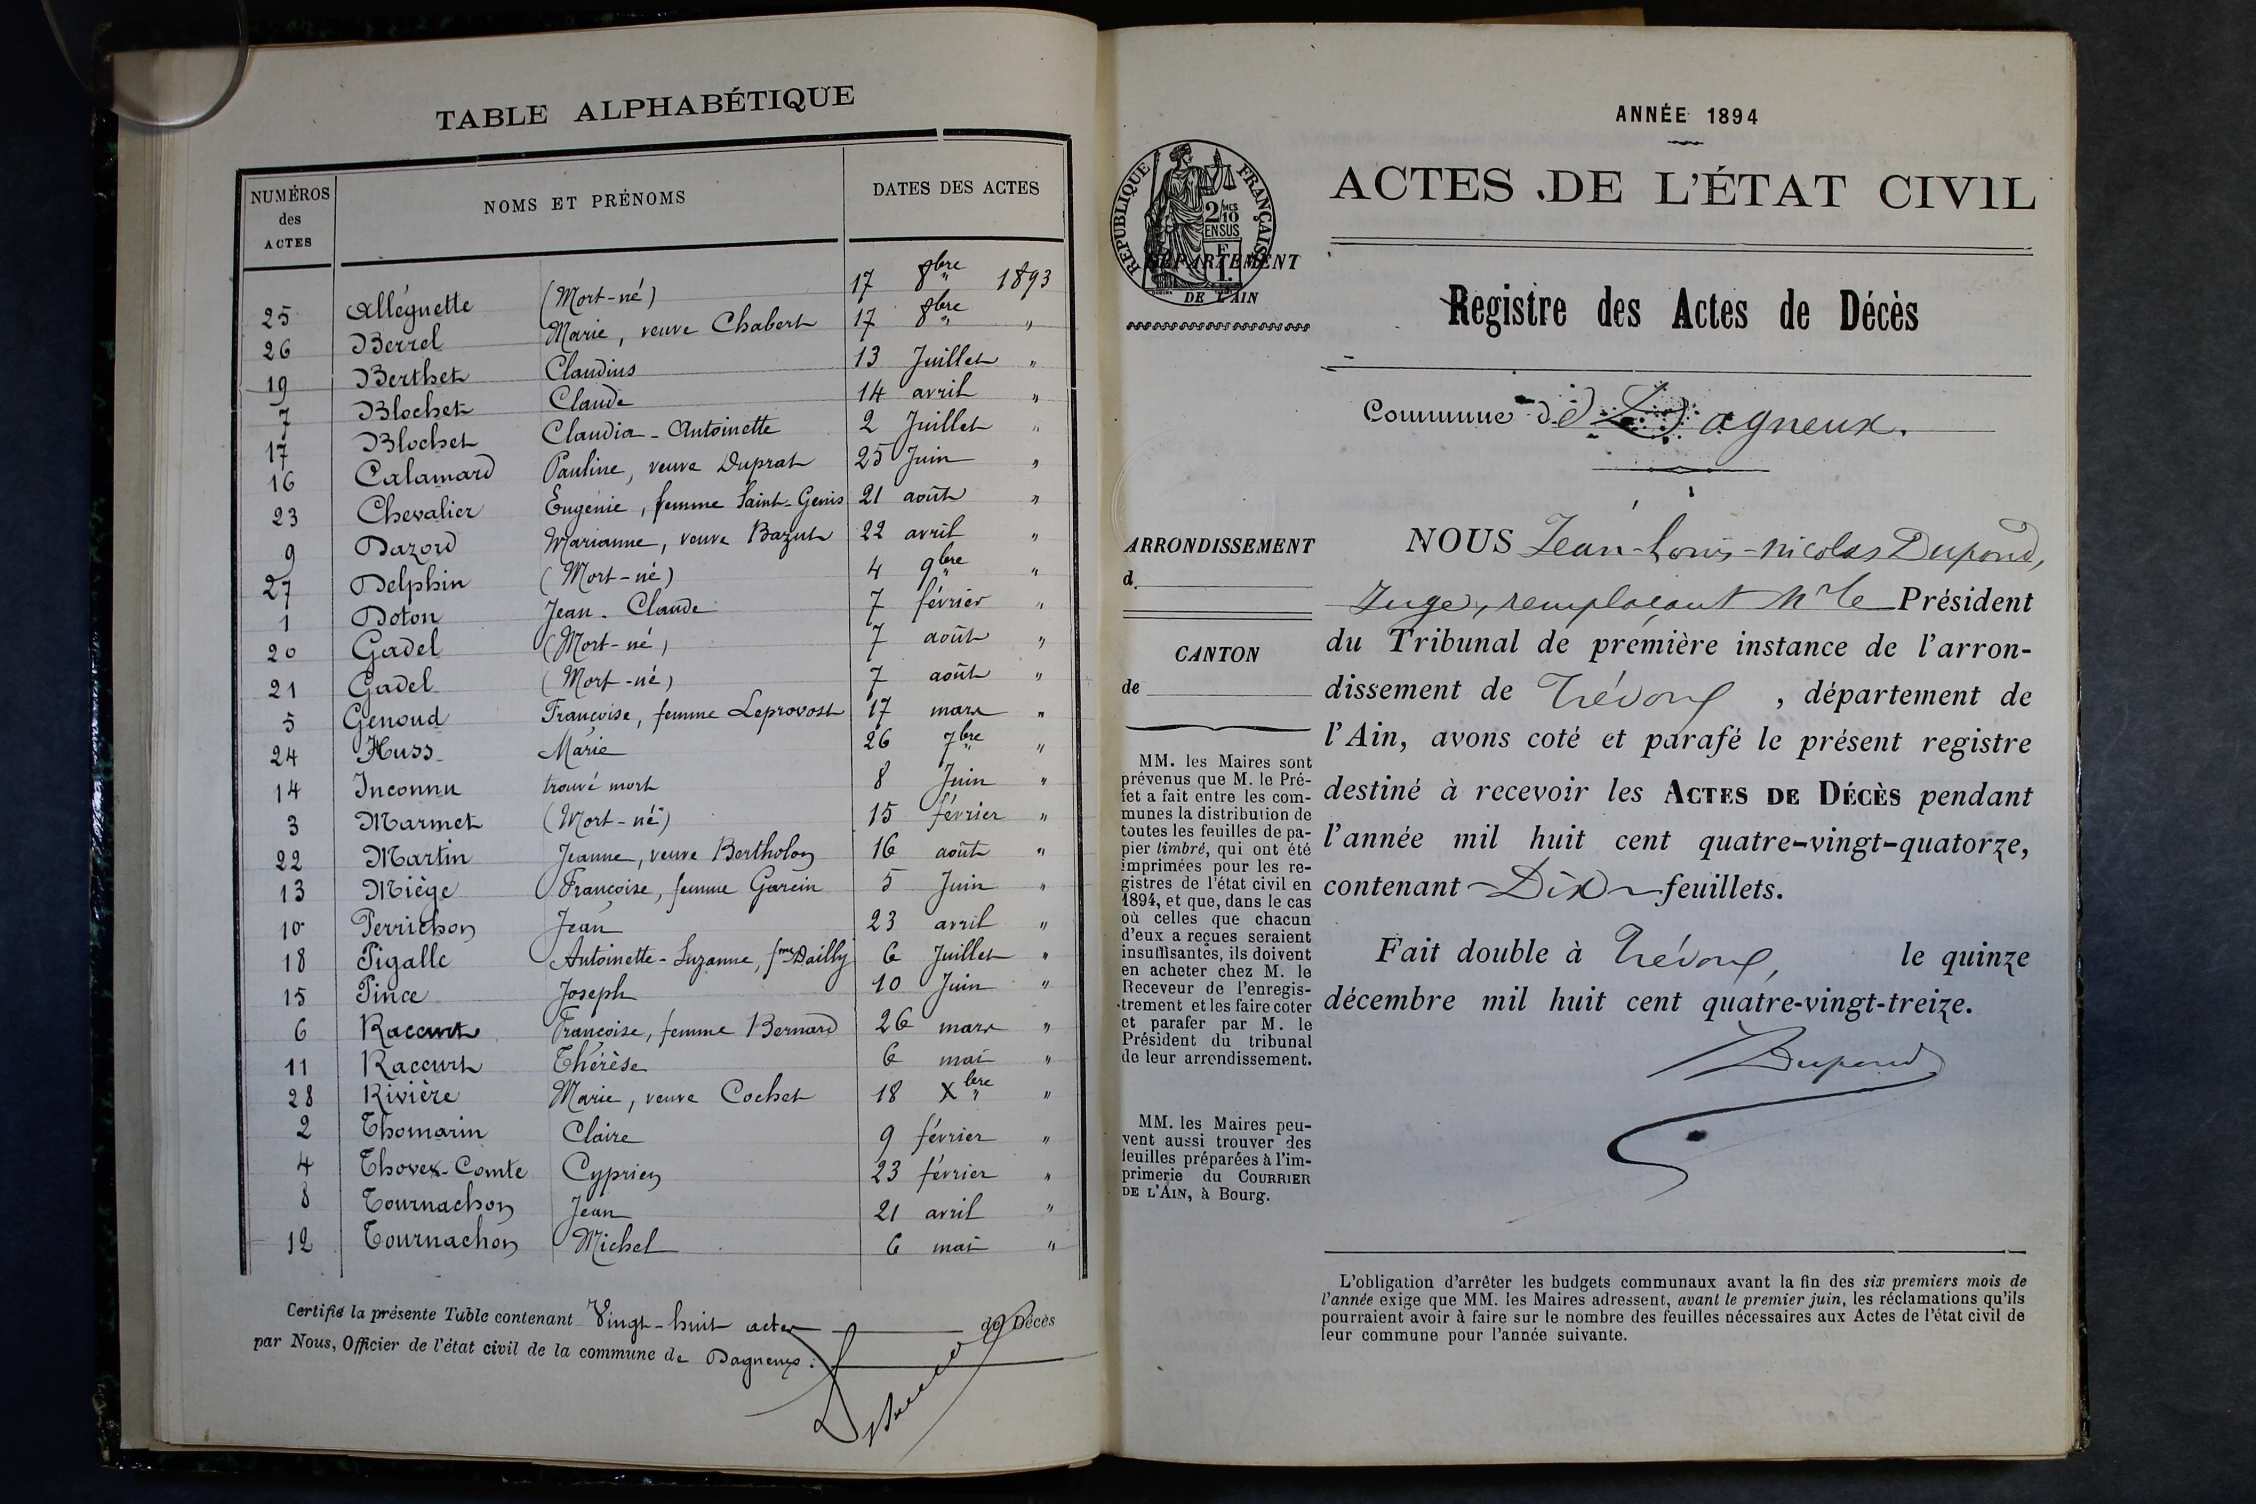 TABLE ALPHABÉTIQUE
NUMÉROS des ACTES NOMS ET PRÉNOMS DATES DES ACTES
25 Alléguette (Mort-né) 17 8bre 1893
26 Berrel Marie, veuve Chabert 17 8bre "
19 Berthet Claudius 13 Juillet "
7 Blochet Claude 14 avril "
17 Blochet Claudia-Antoinette 2 Juillet "
16 Calamard Pauline, veuve Duprat 25 Juin "
23 Chevalier Eugénie, femme Saint-Genis 21 août "
9 Dazord Marianne, veuve Bazut 22 avril "
27 Delphin (Mort-né) 4 9bre "
1 Doton Jean-Claude 7 février "
20 Gadel (Mort-né) 7 août "
21 Gadel (Mort-né) 7 août "
5 Genoud Françoise, femme Leprovost 17 mars "
24 Huss Marie 26 7bre "
14 Inconnu trouvé mort 8 Juin "
3 Marmet (Mort-né) 15 février "
22 Martin Jeanne, veuve Bertholon 16 août "
13 Miège Françoise, femme Garcin 5 Juin "
10 Perrichon Jean 23 avril "
18 Pigalle Antoinette-Suzanne, fme Dailly 6 Juillet "
15 Pince Joseph 10 Juin "
6 Raccurt Françoise, femme Bernard 26 mars "
11 Raccurt Thérèse 6 mai "
28 Rivière Marie, veuve Cochet 18 Xbre "
2 Thomarin Claire 9 février "
4 Thovex-Comte Cyprien 23 février "
8 Tournachon Jean 21 avril "
12 Tournachon Michel 6 mai "
Certifié la présente Table contenant Vingt-huit actes de Décès
par Nous, Officier de l'état civil de la commune de Dagneux.
ANNÉE 1894
ACTES DE L'ÉTAT CIVIL
RÉPUBLIQUE FRANÇAISE
2/10 MES
EN SUS
DÉPARTEMENT
DE L'AIN
Registre des Actes de Décès
Commune de Dagneux.
ARRONDISSEMENT
d
CANTON
de
MM. les Maires sont
prévenus que M. le Pré-
fet a fait entre les com-
munes la distribution de
toutes les feuilles de pa-
pier timbré, qui ont été
imprimées pour les re-
gistres de l'état civil en
1894, et que, dans le cas
où celles que chacun
d'eux a reçues seraient
insuffisantes, ils doivent
en acheter chez M. le
Receveur de l'enregis-
trement et les faire coter
et parafer par M. le
Président du tribunal
de leur arrondissement.
MM. les Maires peu-
vent aussi trouver des
feuilles préparées à l'im-
primerie du COURRIER
DE L'AIN, à Bourg.
NOUS Jean-Louis-Nicolas Dupond,
Juge, remplaçant Mr le Président
du Tribunal de première instance de l'arron-
dissement de Trévoux, département de
l'Ain, avons coté et parafé le présent registre
destiné à recevoir les ACTES DE DÉCÈS pendant
l'année mil huit cent quatre-vingt-quatorze,
contenant Dix feuillets.
Fait double à Trévoux, le quinze
décembre mil huit cent quatre-vingt-treize.
Dupond
L'obligation d'arrêter les budgets communaux avant la fin des six premiers mois de
l'année exige que MM. les Maires adressent, avant le premier juin, les réclamations qu'ils
pourraient avoir à faire sur le nombre des feuilles nécessaires aux Actes de l'état civil de
leur commune pour l'année suivante.